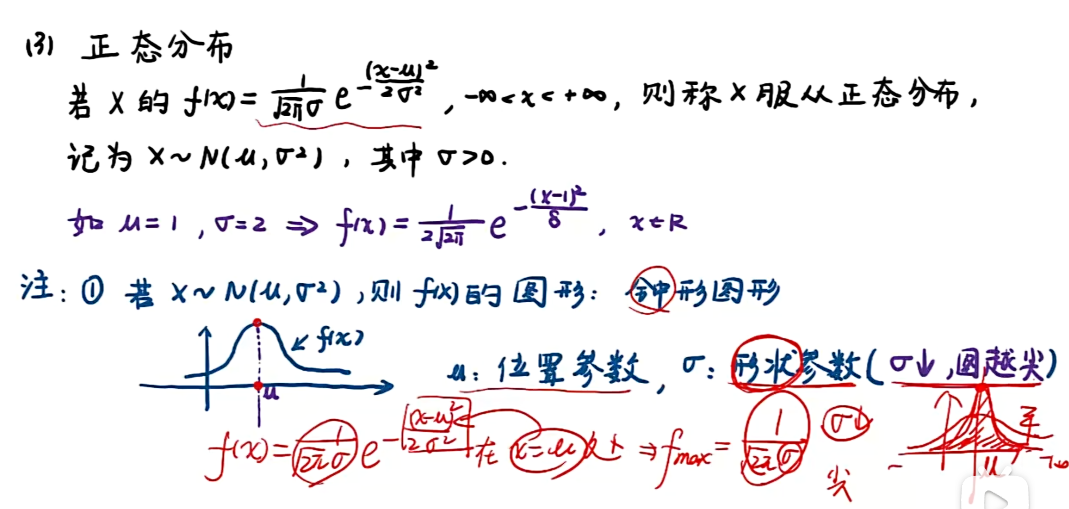 (3) 正态分布
若 X 的 f(x) = \frac{1}{\sqrt{2π}σ} e^{-\frac{(x-μ)^2}{2σ^2}}, -∞<x<+∞, 则称 X 服从正态分布,
记为 X~N(μ,σ²), 其中 σ>0.
如 μ=1, σ=2 ⇒ f(x) = \frac{1}{2\sqrt{2π}} e^{-\frac{(x-1)^2}{8}}, x∈R
注: ① 若 X~N(μ,σ²), 则 f(x) 的图形: 钟形图形
f(x)
μ
μ: 位置参数, σ: 形状参数(σ↓,图越尖)
f(x) = \frac{1}{\sqrt{2π}σ} e^{-\frac{(x-μ)^2}{2σ^2}} 在 x=μ 处 ⇒ f_{max} = \frac{1}{\sqrt{2π}σ} σ↓
尖
μ